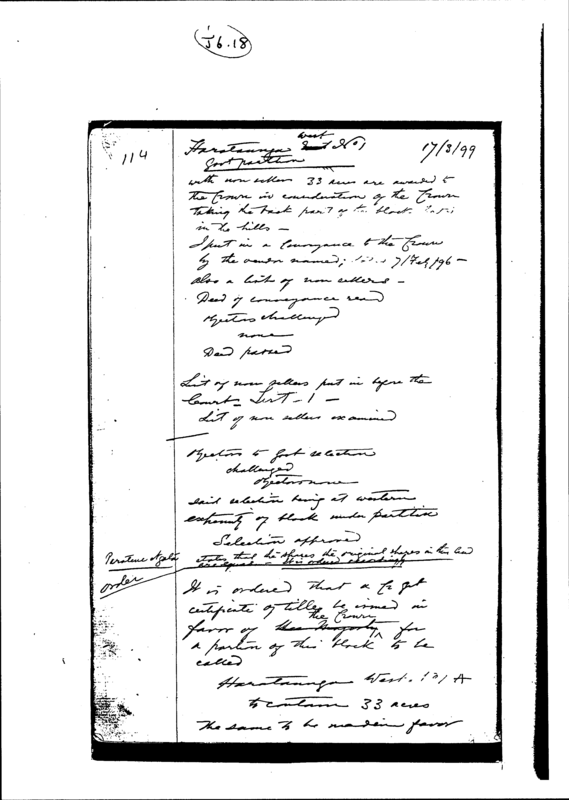 J6.18
114
Harataunga West No 1
17/3/99
Govt partition
with non sellers 33 acres are awarded to
the Crown in consideration of the Crown
taking the back part of the block
in the hills –
I put in a Conveyance to the Crown
by the vendor named; 7/Feb/96 –
also a list of non sellers –
Deed of conveyance read
Objectors challenged
none
Deed passed
List of non sellers put in before the
Court = List – 1 –
List of non sellers examined
Objectors to Govt selection
challenged
Objectors none
said selection being at western
extremity of block under partition
Selection approved
states that the shares the original shares in this land
are equal – It is ordered accordingly
order
It is ordered that a
certificate of title be issued in
the Crown
favor of Her Majesty for
a portion of this block to be
called
Harataunga West. A
to contain 33 acres
the same to be made in favor